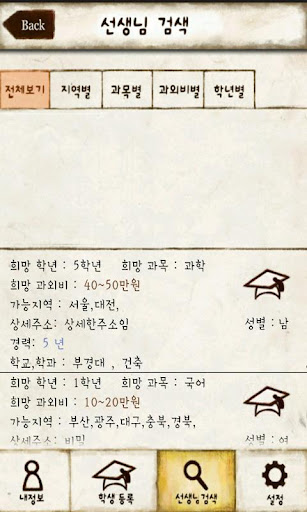 Back
선생님 검색
전체보기 지역별 과목별 과외비별 학년별
희망 학년 : 5학년 희망 과목 : 과학
희망 과외비 : 40~50만원
가능지역 : 서울,대전,
상세주소: 상세한주소임
성별 : 남
경력: 5 년
학교,학과 : 부경대 , 건축
희망 학년 : 1학년 희망 과목 : 국어
희망 과외비 : 10~20만원
가능지역 : 부산,광주,대구,충북,경북,
상세주소: 비밀
성별 : 여
내정보 학생 등록 선생님 검색 설정